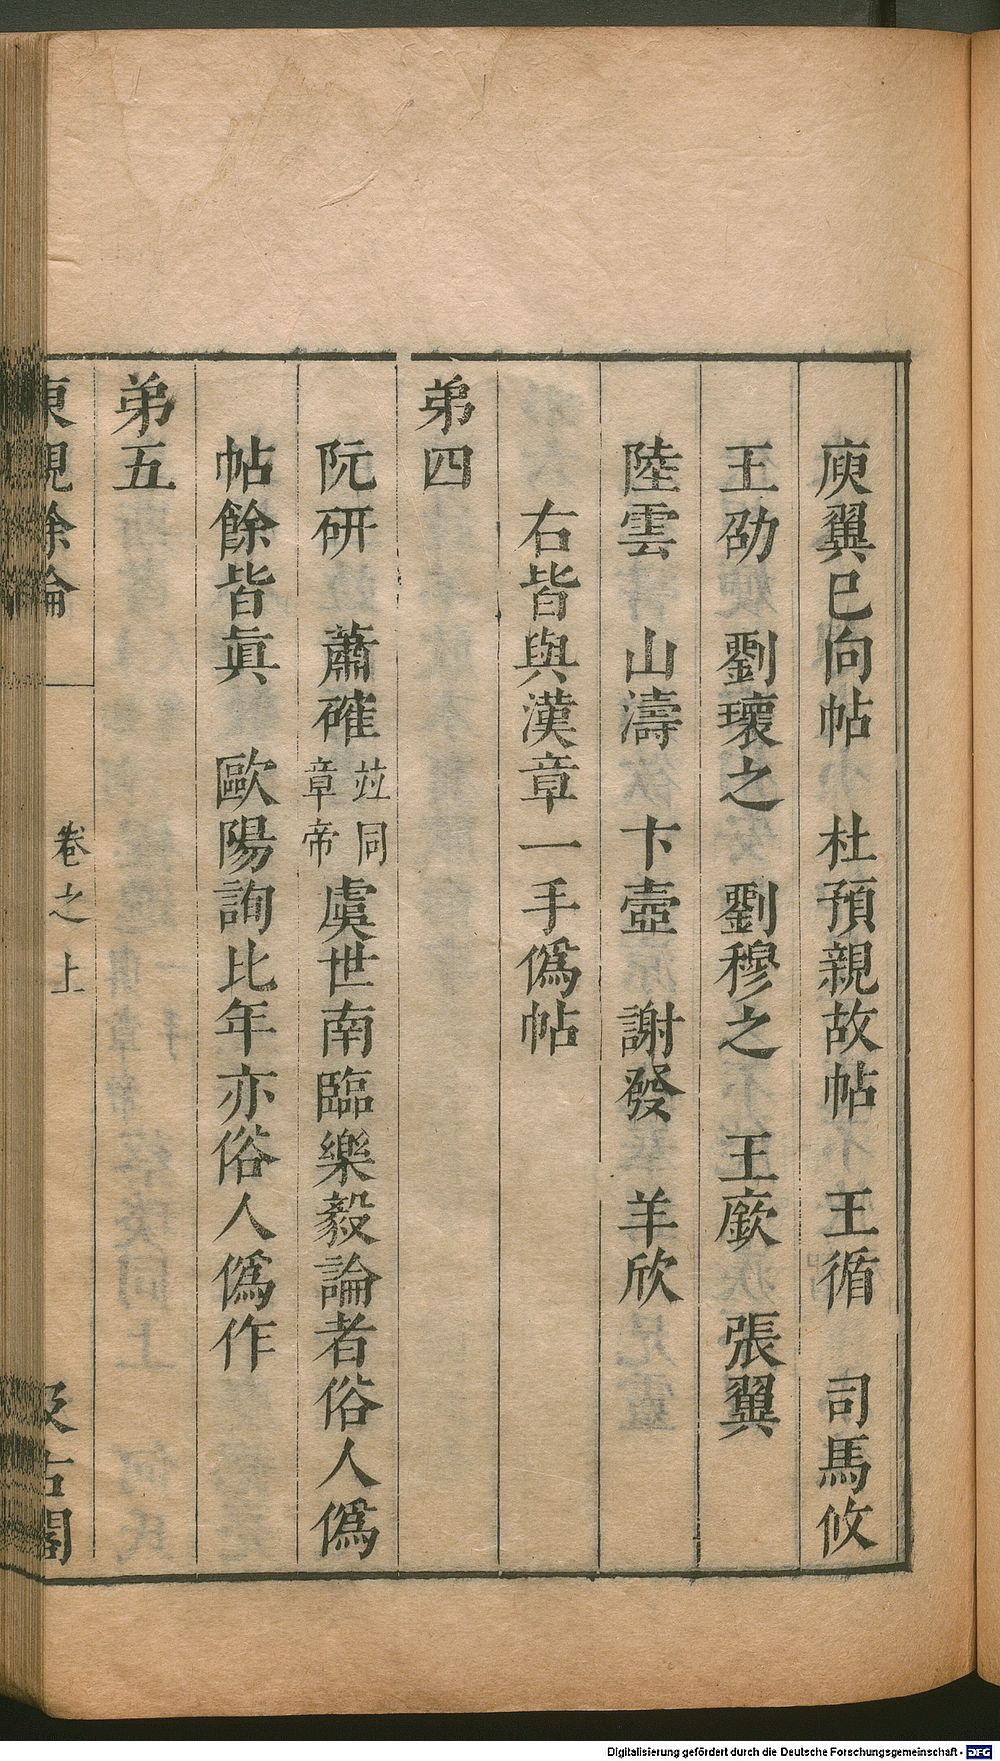 庾翼已向帖　杜預親故帖　王循　司馬攸
王劭　劉瓌之　劉穆之　王廞　張翼
陸雲　山濤　卞壺　謝發　羊欣
右皆與漢章一手僞帖
弟四
阮研　蕭確竝同章帝虞世南臨樂毅論者俗人僞
帖餘皆眞　歐陽詢比年亦俗人僞作
弟五
東觀餘論　卷之上　汲古閣
Digitalisierung gefördert durch die Deutsche Forschungsgemeinschaft - DFG